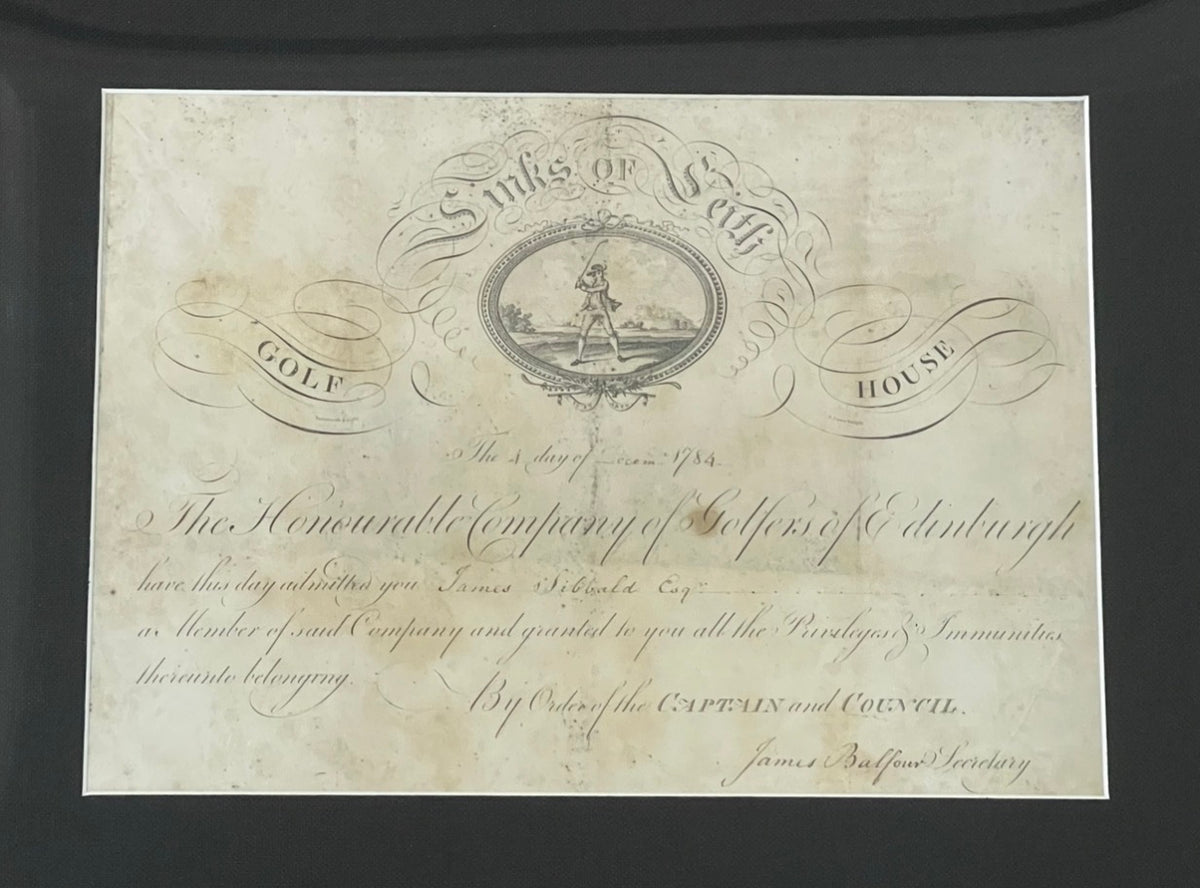 Links OF Leith
GOLF HOUSE
The 4 day of Decem.r 1784.
The Honourable Company of Golfers of Edinburgh
have this day admitted you James Sibbald Esqr
a Member of said Company and granted to you all the Privileges & Immunities
thereunto belonging.
By Order of the CAPTAIN and COUNCIL.
James Balfour Secretary